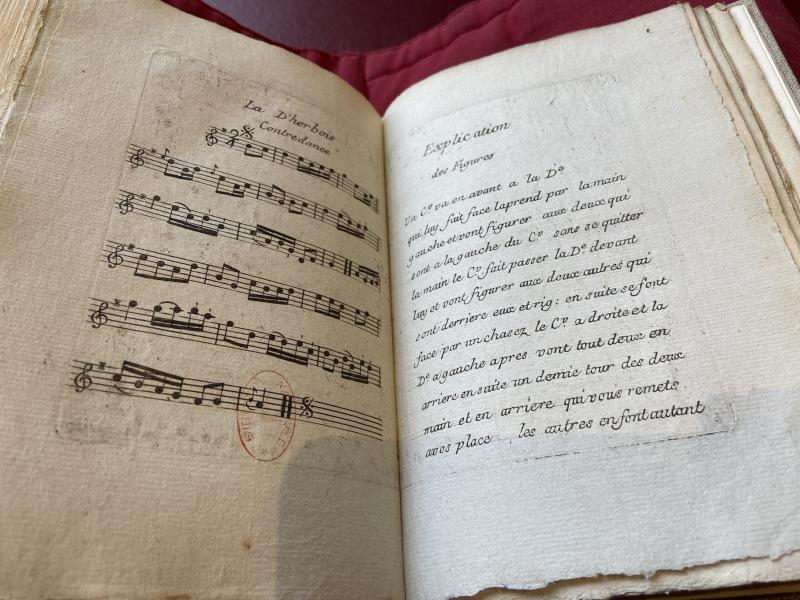 La D'herbois
Contredance
2/4
Explication
des Figures
Un C.r va en avant a la D.e
qui luy fait face laprend par la main
gauche et vont figurer aux deux qui
sont a la gauche du C.r sans se quitter
la main le C.r fait passer la D.e devant
luy et vont figurer aux deux autres qui
sont derriere eux et rig: en suite se font
face par un chasez le C.r a droite et la
D.e a gauche apres vont tout deux en
arriere en suite un demie tour des deux
main et en arriere qui vous remets
avos place les autres en font autant